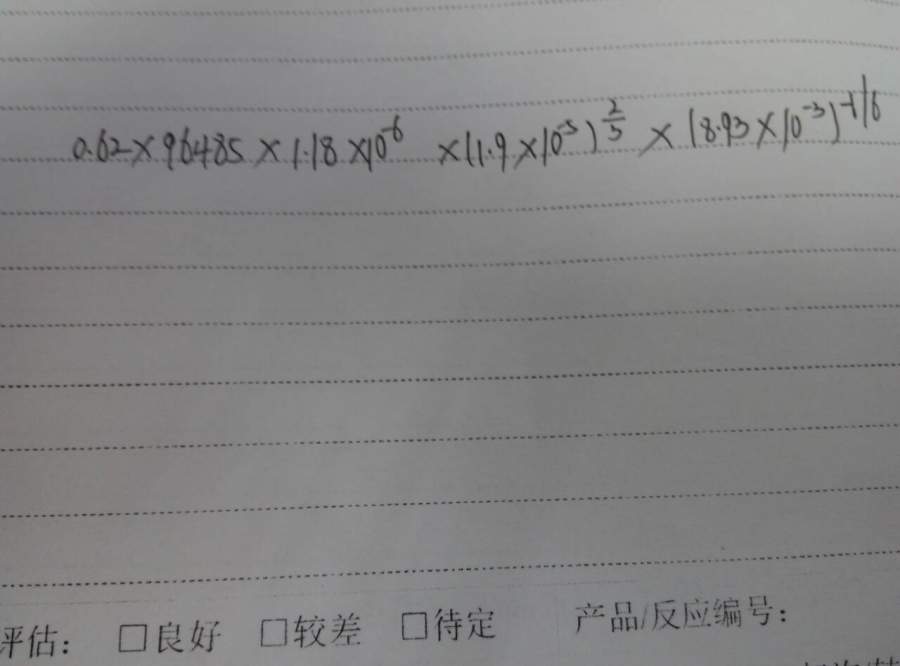 0.62×96485×1.18×10^-6 ×(1.9×10^-5)^2/3 × (8.93×10^-3)^-1/6
评估: □良好 □较差 □待定 产品/反应编号: